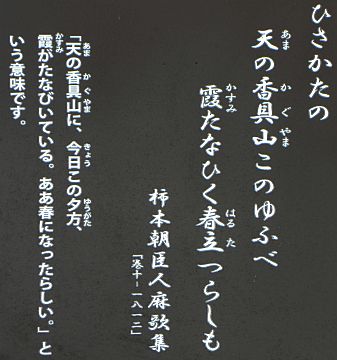 ひさかたの
天の香具山このゆふべ
霞たなひく春立つらしも
柿本朝臣人麻歌集
「巻十−一八一二」
「天の香具山に、今日この夕方、
霞がたなびいている。ああ春になったらしい。」と
いう意味です。